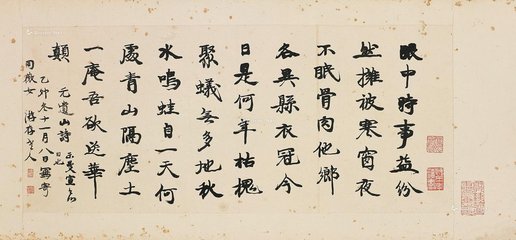 眼中時事益紛
然擁被寒窗夜
不眠骨肉他鄉
各異縣衣冠今
日是何年枯槐
聚蟻無多地秋
水鳴蛙自一天何
處青山隔塵土
一庵吾欲送華
顛
元遺山詩
示曼宣
乙卯冬十一月八日寫寄
同薇女 游存老人